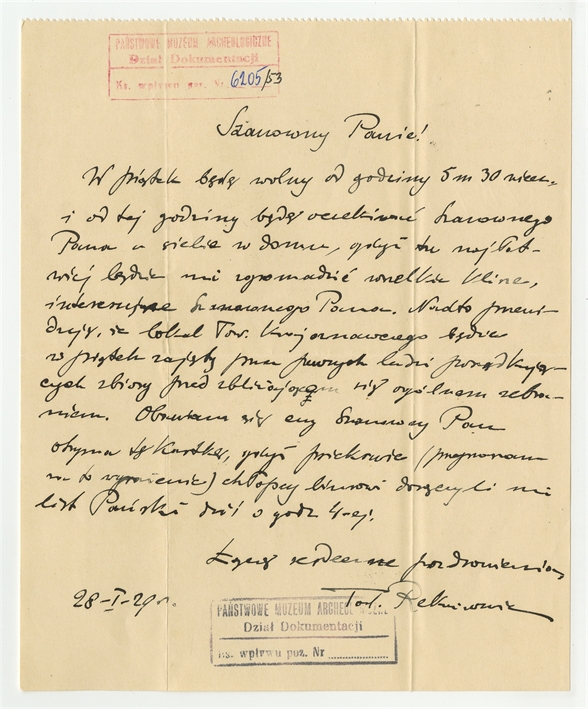 PAŃSTWOWE MUZEUM ARCHEOLOGICZNE
Dział Dokumentacji
Ks. wpływu poz. Nr 6205/53
Szanowny Panie!
W piątek będę wolny od godziny 5 m 30 wiecz.
i od tej godziny będę oczekiwać Szanownego
Pana u siebie w domu, gdyż tu najłat-
wiej będzie mi zgromadzić wszelkie klisze,
interesujące Szanownego Pana. Nadto
że lokal Tow. Krajoznawczego będzie
w piątek zajęty przez ludzi porządkują-
cych zbiory przed zbliżającym się ogólnem zebra-
niem. Obawiam się czy Szanowny Pan
otrzyma tę kartkę, gdyż
na to chłopcy biurowi doręczyli mi
list Pański dziś o godz 4-ej.
Łączę serdeczne pozdrowienia
28-I-29 r.
PAŃSTWOWE MUZEUM ARCHEOLOGICZNE
Dział Dokumentacji
Ks. wpływu poz. Nr